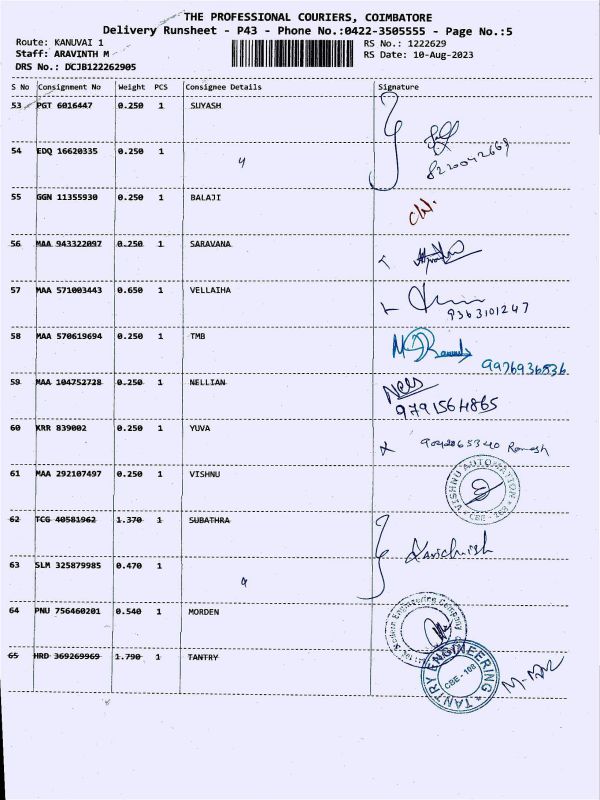 THE PROFESSIONAL COURIERS, COIMBATORE
Delivery Runsheet - P43 - Phone No.:0422-3505555 - Page No.:5
Route: KANUVAI 1 RS No.: 1222629
Staff: ARAVINTH M RS Date: 10-Aug-2023
DRS No.: DCJB122262905
S No Consignment No Weight PCS Consignee Details Signature
53 PGT 6016447 0.250 1 SUYASH
54 EDQ 16620335 0.250 1
55 GGN 11355930 0.250 1 BALAJI
56 MAA 943322097 0.250 1 SARAVANA
57 MAA 571003443 0.650 1 VELLAIHA
9363101247
58 MAA 570619694 0.250 1 TMB
9976936836
59 MAA 104752728 0.250 1 NELLIAN
9791564865
60 KRR 839002 0.250 1 YUVA
Ramesh
61 MAA 292107497 0.250 1 VISHNU
VISHNU AUTOMATION
CBE - 108
62 TCG 40581962 1.370 1 SUBATHRA
63 SLM 325879985 0.470 1
64 PNU 756460201 0.540 1 MORDEN
Modern Engineering Company
65 HRD 369269969 1.790 1 TANTRY
TANTRY ENGINEERING
CBE - 108